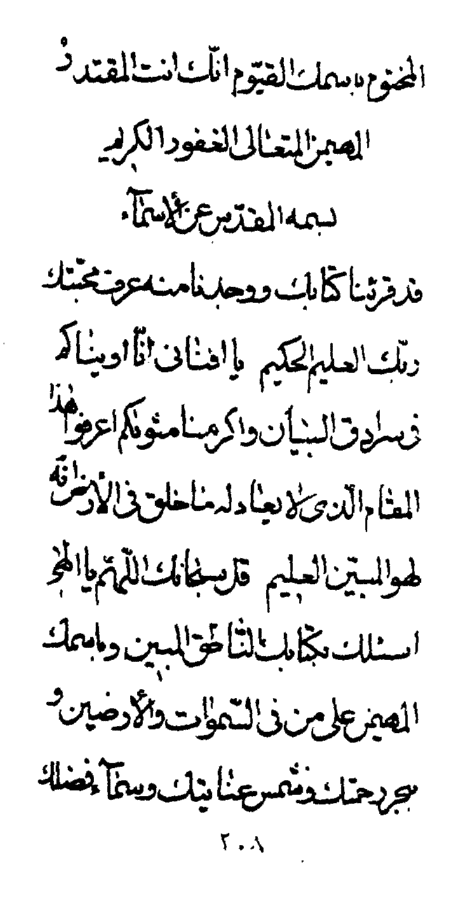 المختوم باسمك القيّوم انّك انت المقتدر
المهيمن المتعالى الغفور الكريم
بسمه المقدّس عن الأسمآء
قد قرئنا كتابك و وجدنا منه عرف محبّتك
ربّك العليم الحكيم يا افنانى انّا اويناكم
فى سرادق البيان و اكرمنا مثويكم اعرفوا هذا
المقام الّذى لا يعادله ما خلق فى الأرض انّه
لهو المبيّن العليم قل سبحانك اللّهمّ يا الهى
اسئلك بكتابك النّاطق المبين و باسمك
المهيمن على من فى السّموات و الأرضين و
ببحر رحمتك و شمس عنايتك و سمآء فضلك
٢٠٨